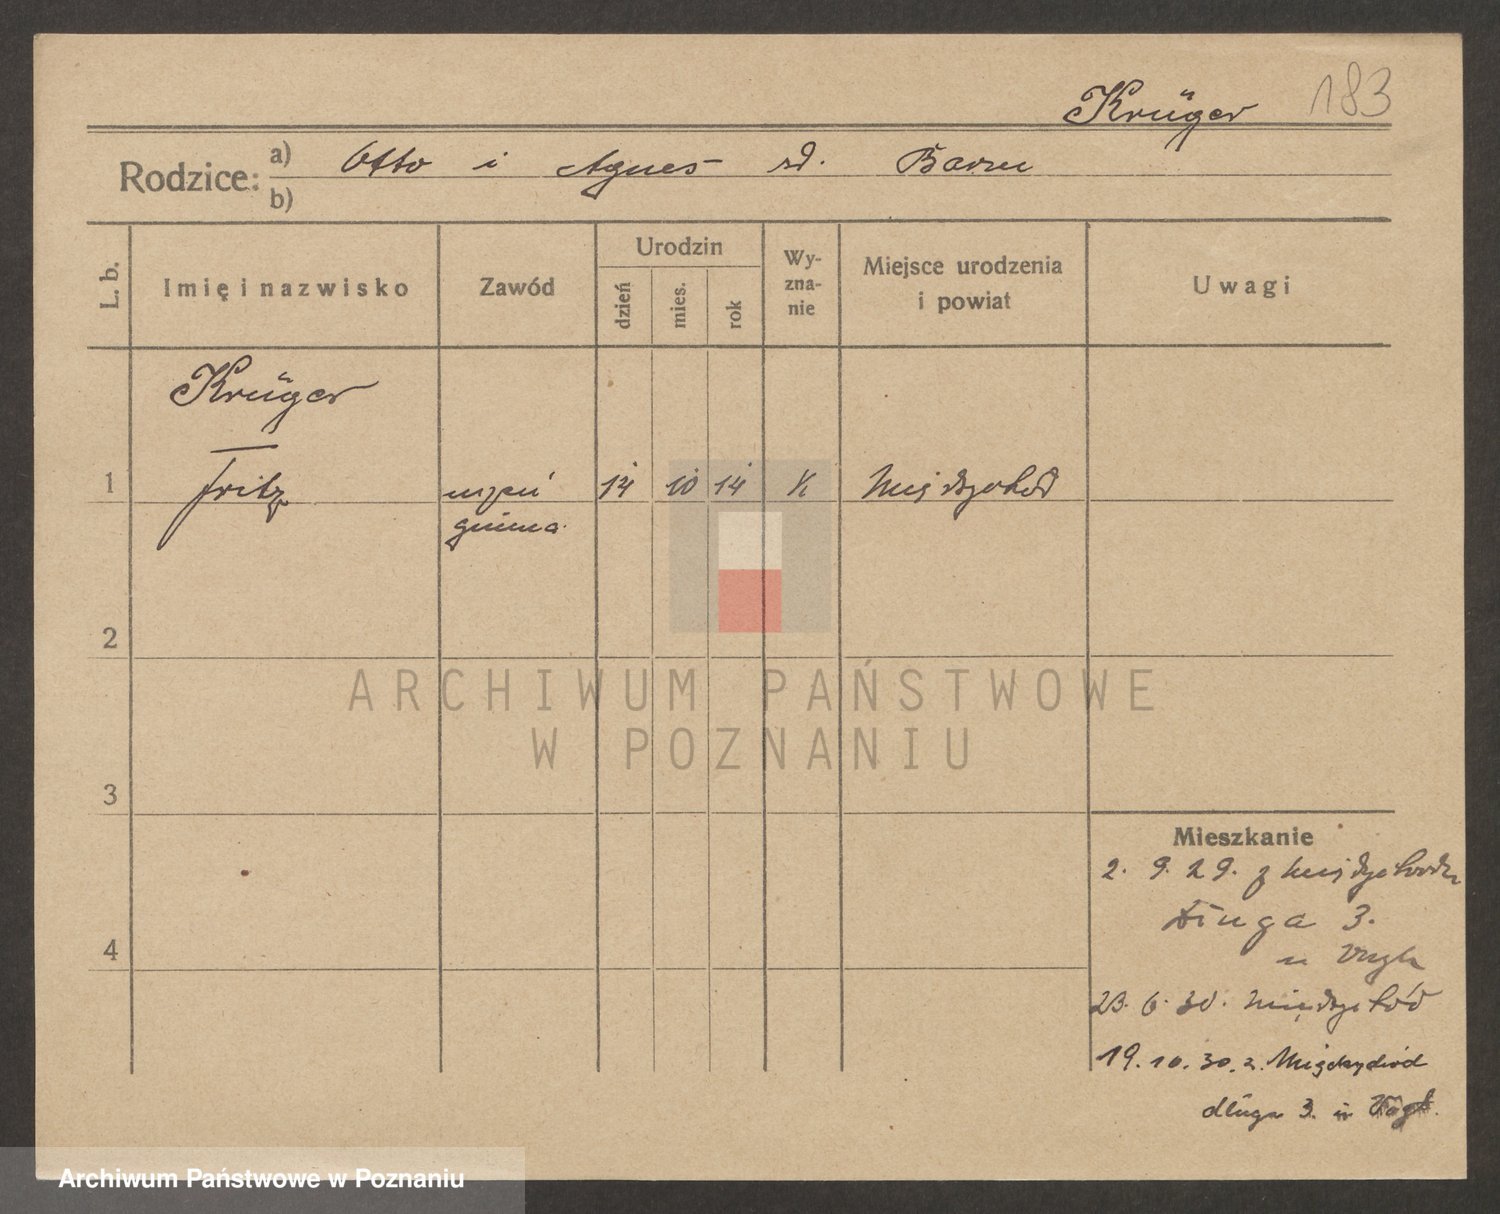 Krüger 183
Rodzice: a) Otto i Agnes rd. Barsu
b)
L. b. Imię i nazwisko Zawód Urodzin dzień mies. rok Wy-zna-nie Miejsce urodzenia i powiat Uwagi
Krüger
1 Fritz uczeń 14 10 14 K Międzychód
gimna.
2
ARCHIWUM PAŃSTWOWE
W POZNANIU
3
Mieszkanie
2. 9. 29. z Międzychodu
Długa 3.
4
u Vogt
23. 6. 30. Międzychód
19. 10. 30. z. Międzychód
długa 3. u Vogt.
Archiwum Państwowe w Poznaniu